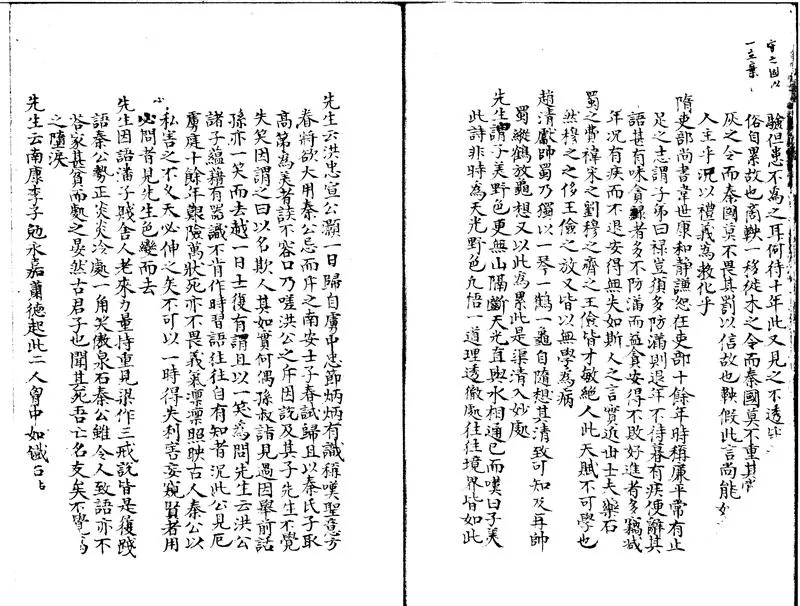 守之固以
一立業
驗但患不為之耳何待十年此又見之不透
俗自累故也商鞅一移徙木之令而秦國莫不重其賞
灰之令而秦國莫不畏其罰以信故也鞅假此言尚能
人主乎況以禮義為教化乎
隋吏部尚書韋世康和靜謙恕在吏部十餘年時稱廉平常有止
足之志謂子弟曰祿豈須多防滿則退年不待暮有疾便辭其
語甚有味貪祿者多不防滿而益貪安得不敗好進者多竊減
年況有疾而不退安得無失如斯人之言實近世士夫藥石
蜀之費禕宋之劉穆之齊之王儉皆才敏絕人此天賦不可學也
然穆之之侈王儉之放又皆以無學為病
趙清獻帥蜀乃獨以一琴一鶴一龜自隨想其清致可知及再帥
蜀縱鶴放龜想又以此為累此是渠清入妙處
先生謂子美野色更無山隔斷天光直與水相通已而嘆曰子美
此詩非時為天光野色尤悟一道理透徹處往往境界皆如此
先生云洪忠宣公灝一日歸自虜中忠節炳炳有識稱嘆聖意方
春將欲大用秦公忌而斥之南安士子春試歸且以秦氏子取
高第為美者談不容口乃嗟洪公之斥因說及其子先生不覺
失笑因謂之曰以名欺人其如實何偶孫叔詣見過因舉前話
孫亦一笑而去越一日士復有謂且以一笑為問先生云洪公
諸子蘊藉有器識不肯作時習語往往自有知者況此公見厄
虜庭十餘年艱險萬狀死亦不畏義氣凜凜照映古人秦公以
私害之不義天必伸之矣不可以一時得失利害妄窺賢者用
心問者見先生色變而去
先生因語滿子賤舍人老來力量持重見梁作三戒說皆是復踐
語秦公勢正炎炎冷處一角笑傲泉石秦公雖令人致語亦不
答家甚貧而處之晏然古君子也聞其死吾亡名友矣不覺為
之墮淚
先生云南康李子勉永嘉蕭德起此二人胷中如鐵石